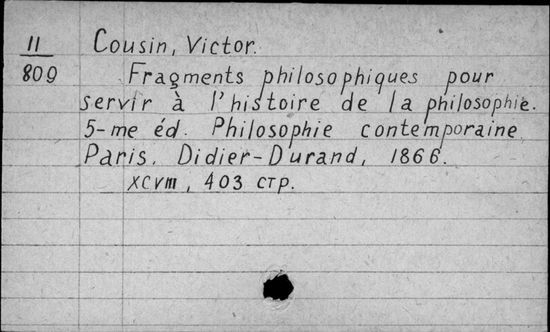 II Cousin, Victor.
809 Fragments philosophiques pour
servir à l'histoire de la philosophie.
5-me éd. Philosophie contemporaine
Paris. Didier-Durand, 1866.
XCVIII, 403 стр.